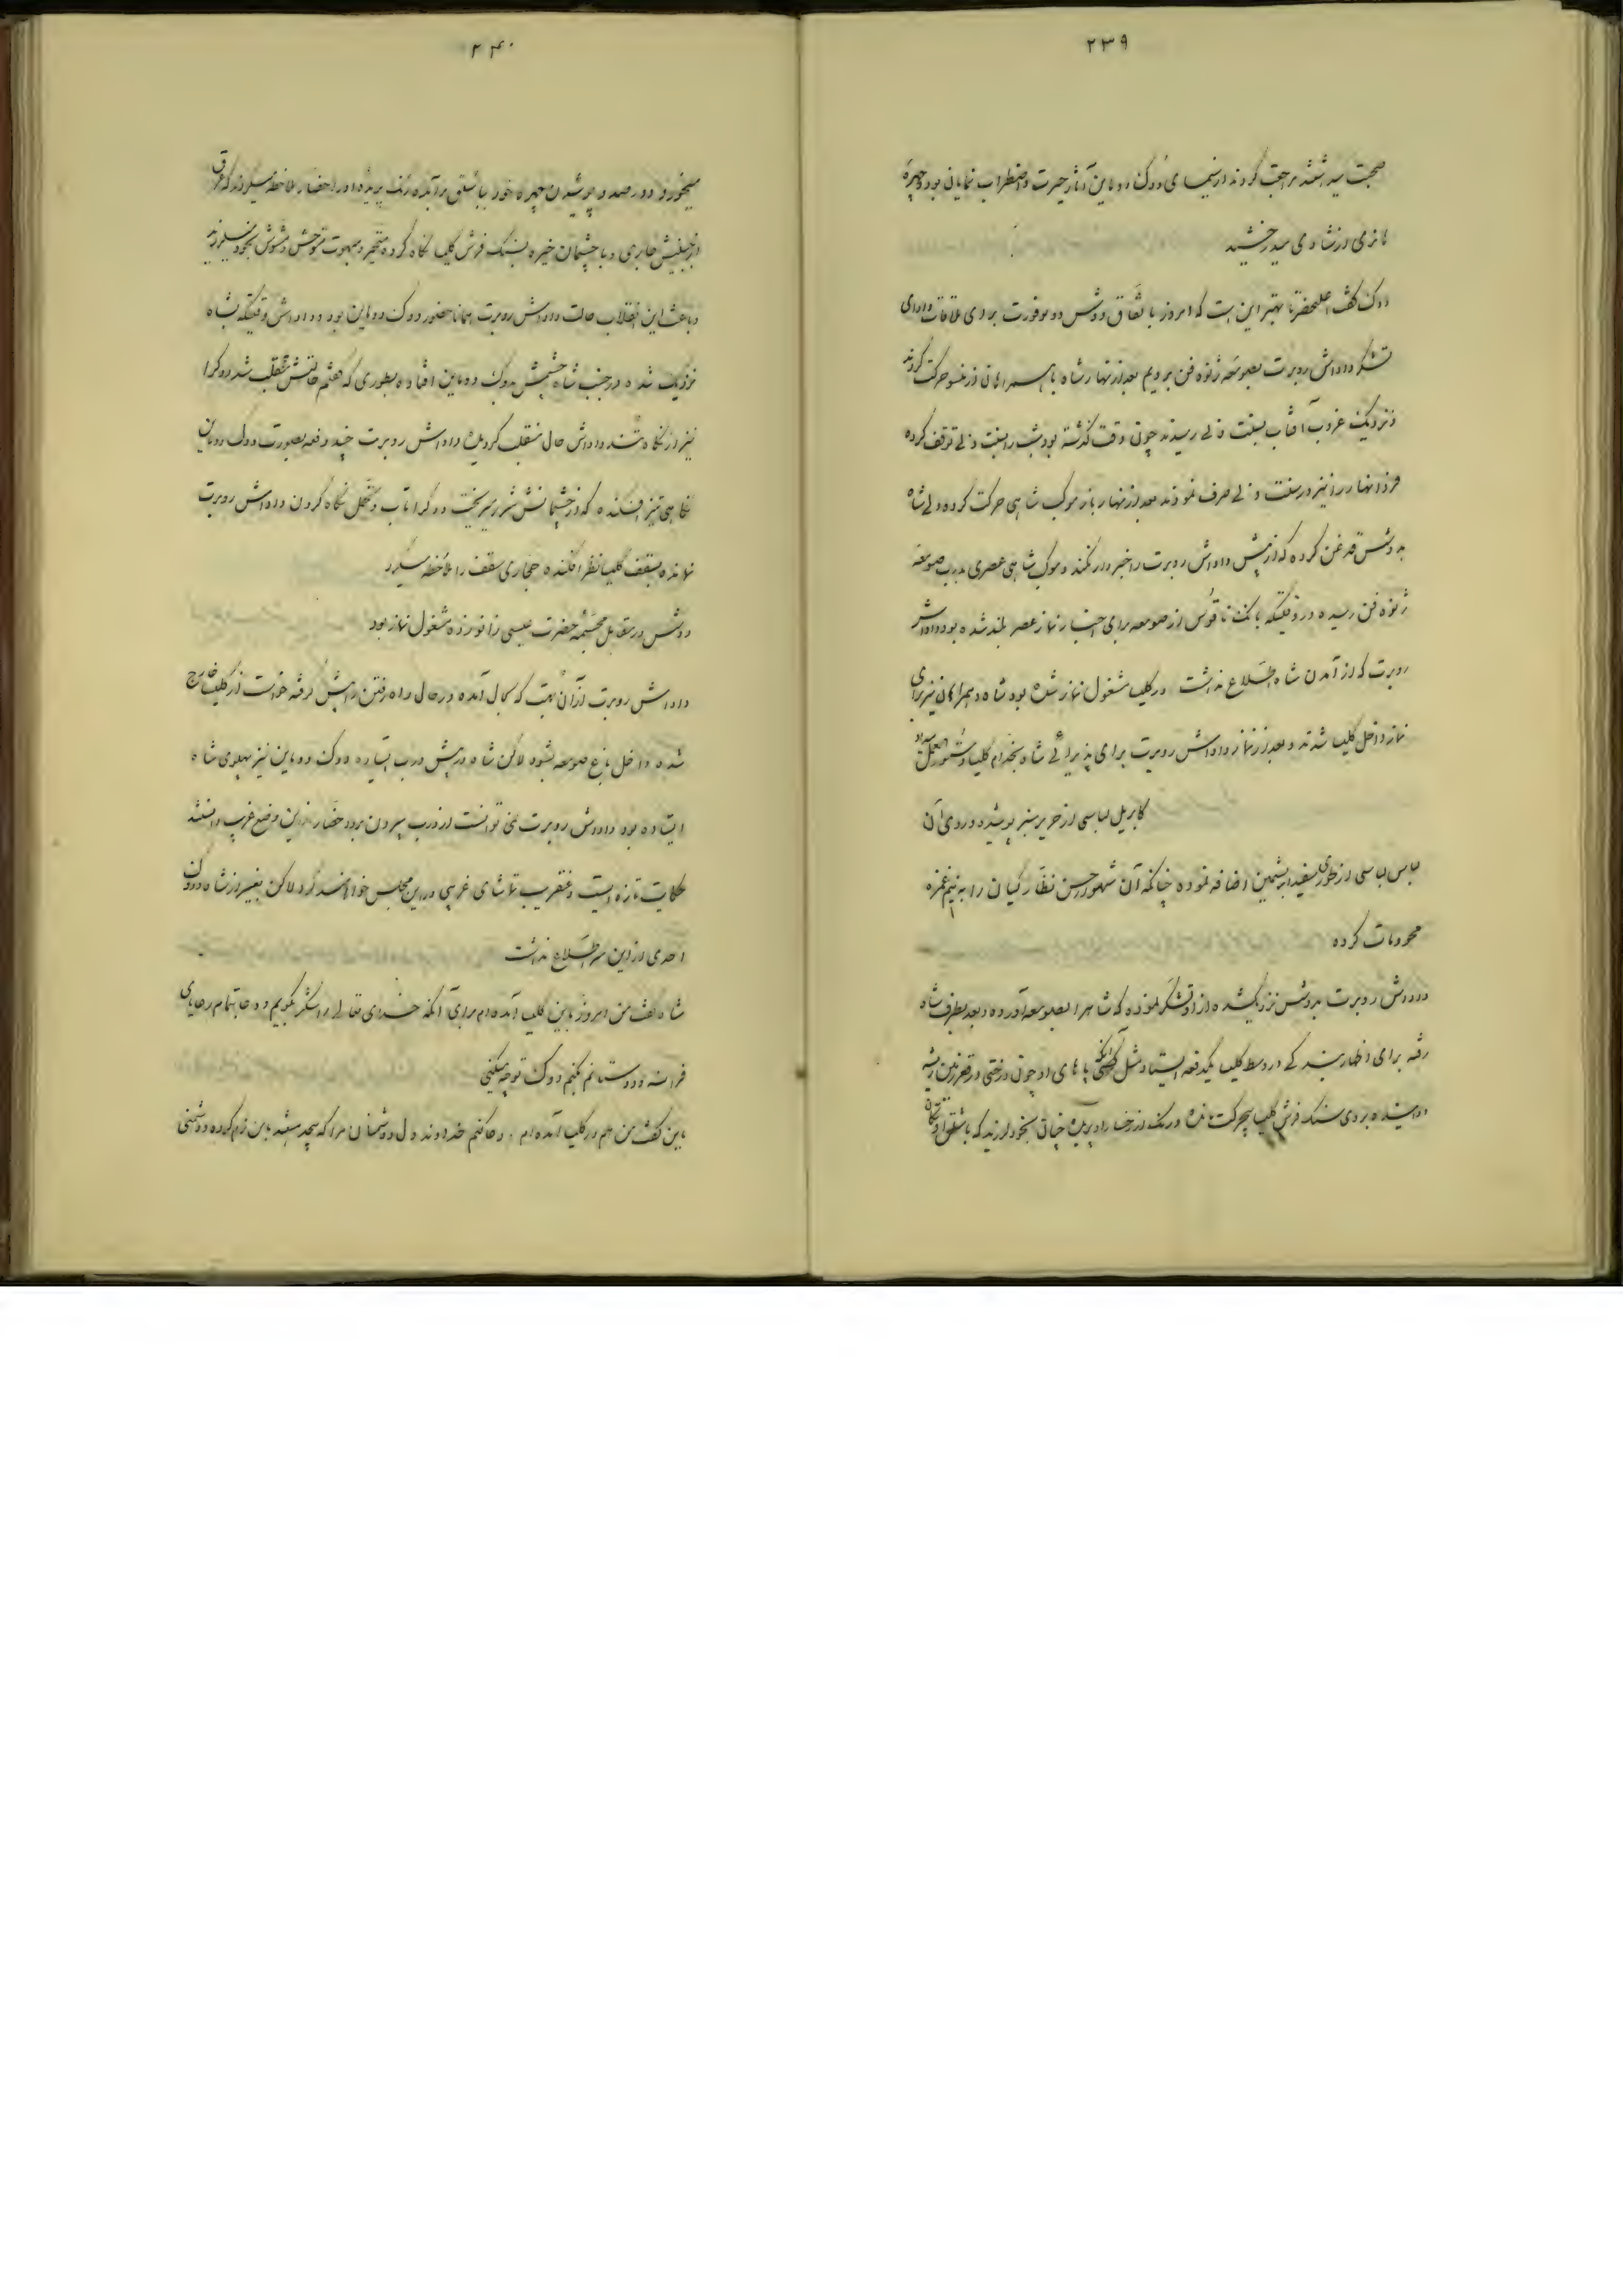 ۲۳۹
صحبت میداشتند مراجعت کردند از سیمای دوک دوماین آثار حیرت و اضطراب نمایان بود و چهره
هانری از شادی میدرخشید
دوک گفت اعلیحضرتا بهتر این است که امروز با تفاق دوشس دو بوفورت برای ملاقات و ادای
تشکر داداش روبرت بصومعه ژنوه فن برویم بعد از نهار شاه با همراهان از منسو حرکت کردند
و نزدیک غروب آفتاب بسنت دنی رسیدند چون وقت گذشته بود شب را بسنت دنی توقف کرده
فردا نهار را نیز در سنت دنی صرف نمودند بعد از نهار باز موکب شاهی حرکت کرده ولی شاه
بدوشس قدغن کرده که از پیش داداش روبرت را خبردار نکند و موکب شاهی عصری بدرب صومعه
ژنوه فن رسیده در وقتیکه بانک ناقوس از صومعه برای اخبار نماز عصر بلند شده بود داداش
روبرت که از آمدن شاه اطلاع نداشت در کلیسا مشغول نماز شده بود شاه و همراهان نیز برای
نماز داخل کلیسا شدند و بعد از نماز داداش روبرت برای پذیرائی شاه بخدام کلیسا دستورالعمل میداد
کابریل لباسی از حریر سبز پوشیده و روی آن
لباس لباسی از طوری سفید ابریشمین اضافه نموده چنانکه آن مشهور حسن نظارکیان را به نیم غمزه
محو و مات کرده
داداش روبرت بدوشس نزدیک شده از او تشکر نموده که شاه را بصومعه آورده و بعد بطرف شاه
رفته برای اظهار بندگی در وسط کلیسا یکدفعه ایستاد مثل آنکه پاهای او چون درختی در قعر زمین ریشه
دوانیده بروی سنک فرش کلیسا بیحرکت مانده و رنک از رخسار او پریده چنان بخود لرزید که باشلق او تکان
۲۴۰
میخورد و در صدد پوشیدن چهره خود با باشلق برآمده رنک پریده او را حضار ملاحظه میکردند که عرق
از جبینش جاری و با چشمان خیره بسنک فرش کلیسا نگاه کرده متحیر و مبهوت متوحش و مشوش بخود میلرزید
و باعث این انقلاب حالت داداش روبرت همانا حضور دوک دوماین بود و داداش وقتیکه بشاه
نزدیک شده در جنب شاه چشمش بدوک دوماین افتاده بطوری که گفتم حالتش منقلب شد و دوک را
نیز از نگاه تند داداش حال منقلب گردیده داداش روبرت چند دفعه بصورت دوک دوماین
نگاهی تیز افکنده که از چشمانش شرر میریخت و دوک را تاب و تحمل نگاه کردن داداش روبرت
نمانده بسقف کلیسا نظر افکنده حجاری سقف را ملاحظه میکرد
دوشس در مقابل مجسمه حضرت عیسی زانو زده مشغول نماز بود
داداش روبرت از آن بهت که بحال آمده در حال راه رفتن راهش گرفته خواست از کلیسا خارج
شده داخل باغ صومعه بشود لاکن شاه در پیش درب ایستاده و دوک دوماین نیز پهلوی شاه
ایستاده بود داداش روبرت نمی توانست از درب بیرون برود حضار از این وضع غریب دانستند
حکایت تازه ایست و عنقریب تماشای غریبی در این مجلس خواهند کرد لاکن بغیر از شاه و دوک
احدی از این سر اطلاع نداشت
شاه گفت من امروز باین کلیسا آمده ام برای آنکه خدای تعالی را شکر بگویم و دعا بتمام رعایای
فرانسه و دوستانم بکنم دوک تو چه میکنی
ماین گفت من هم در کلیسا آمده ام و دعا کنم خداوند دل دوشمنان مرا که بیجهت باین نرم کرده و دوشمنی